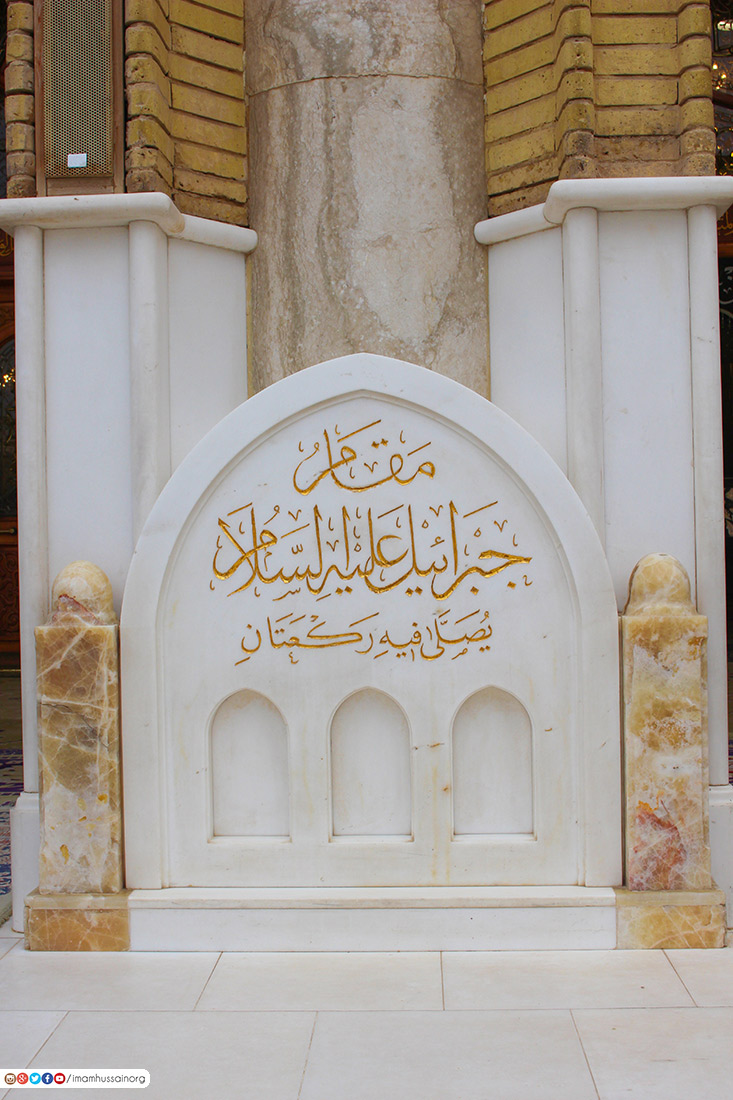 مقام
جبرائيل عليه السّلام
يُصَلّى فيهِ رَكْعَتَانِ
/imamhussainorg